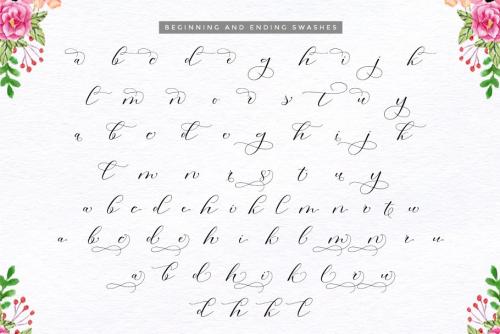 BEGINNING AND ENDING SWASHES
a b c d o g h i j k
l m n o r s t u y
a b c d o g h i j k
l m n r s t u y
a b c d e h i k l m n o t u
a b c d o h i k l m n r u
a b d h i k l o u
d h k l